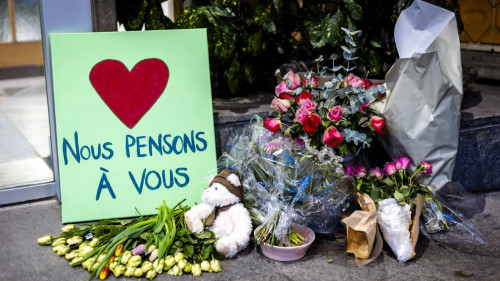 Nous pensons
à vous